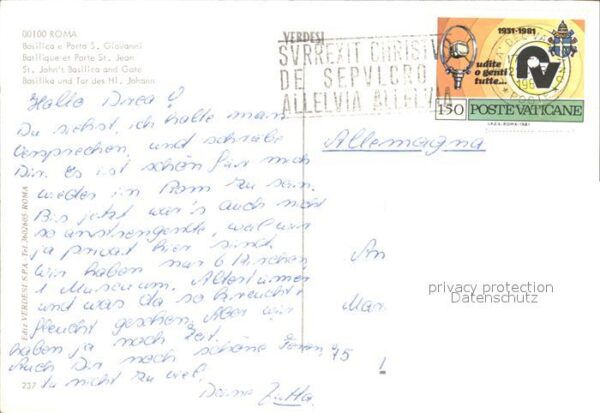 00100 ROMA
Basilica e Porta S. Giovanni
Basilique et Porte St. Jean
St. John's Basilica and Gate
Basilika und Tor des Hl. Johann
VERDESI
SVRREXIT CHRISTVS
DE SEPVLCRO
ALLELVIA ALLELVIA
1931-1981
udite
o genti
tutte...
150 POSTE VATICANE
Hallo Drea!
Du siehst, ich halte mein
Versprechen und schreibe
Dir. Es ist schön für mich
wieder in Rom zu sein.
Bis jetzt war's auch nicht
so anstrengend, weil wir
ja privat hier sind.
Wir haben nur 6 Kirchen,
1 Museum, Altertümer
und was da so kreucht +
fleucht gesehen. Aber wir
haben ja noch Zeit.
Auch Dir noch schöne Ferien,
Tu nicht zu viel.
Deine Jutta
Allemagna
An
Mar
75 1
privacy protection
Datenschutz
Ediz VERDESI S.P.A. Tel. 3602605 ROMA
237